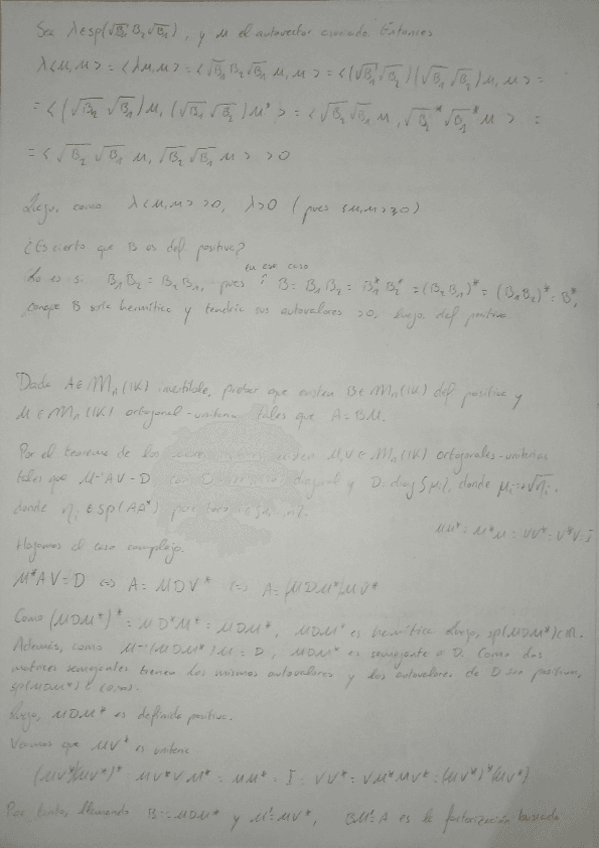 Sea λ∈sp(√B₁ B₂ √B₁), y u el autovector asociado. Entonces
λ<u,u> = <λu,u> = <√B₁ B₂ √B₁ u, u> = <(√B₁ √B₂)(√B₂ √B₁)u, u> =
= <(√B₂ √B₁)u, (√B₁ √B₂)u*> = <√B₂ √B₁ u, √B₂* √B₁* u> =
= <√B₂ √B₁ u, √B₂ √B₁ u> >0
Luego, como λ<u,u> >0, λ>0 (pues <u,u> ≥0)
¿Es cierto que B es def. positiva?
Lo es si B₁B₂ = B₂B₁, pues en ese caso B = B₁B₂ = B₁* B₂* = (B₂B₁)* = (B₁B₂)* = B*,
porque B sería hermítica y tendría sus autovalores >0, luego def. positiva.
Dada A∈Mₙ(IK) invertible, probar que existen B∈Mₙ(IK) def. positiva y
U∈Mₙ(IK) ortogonal-unitaria tales que A = BU.
Por el teorema de los existen U,V∈Mₙ(IK) ortogonales-unitarias
tales que U*AV = D con D diagonal y D = diag{μᵢ}, donde μᵢ = √ηᵢ,
donde ηᵢ ∈ sp(AA*) para
UU* = U*U = VV* = V*V = I
Hagamos el caso complejo.
U*AV = D ⇔ A = UDV* ⇔ A = (UDU*)UV*
Como (UDU*)* = UD*U* = UDU*, UDU* es hermítica. Luego, sp(UDU*)⊂ℝ.
Además, como U⁻¹(UDU*)U = D, UDU* es semejante a D. Como dos
matrices semejantes tienen los mismos autovalores y los autovalores de D son positivos,
sp(UDU*)⊂(0,∞).
Luego, UDU* es definida positiva.
Veamos que UV* es unitaria
(UV*)(UV*)* = UV*VU* = UU* = I = VV* = VU*UV* = (UV*)*(UV*)
Por tanto, llamando B := UDU* y U' = UV*, BU' = A es la factorización buscada